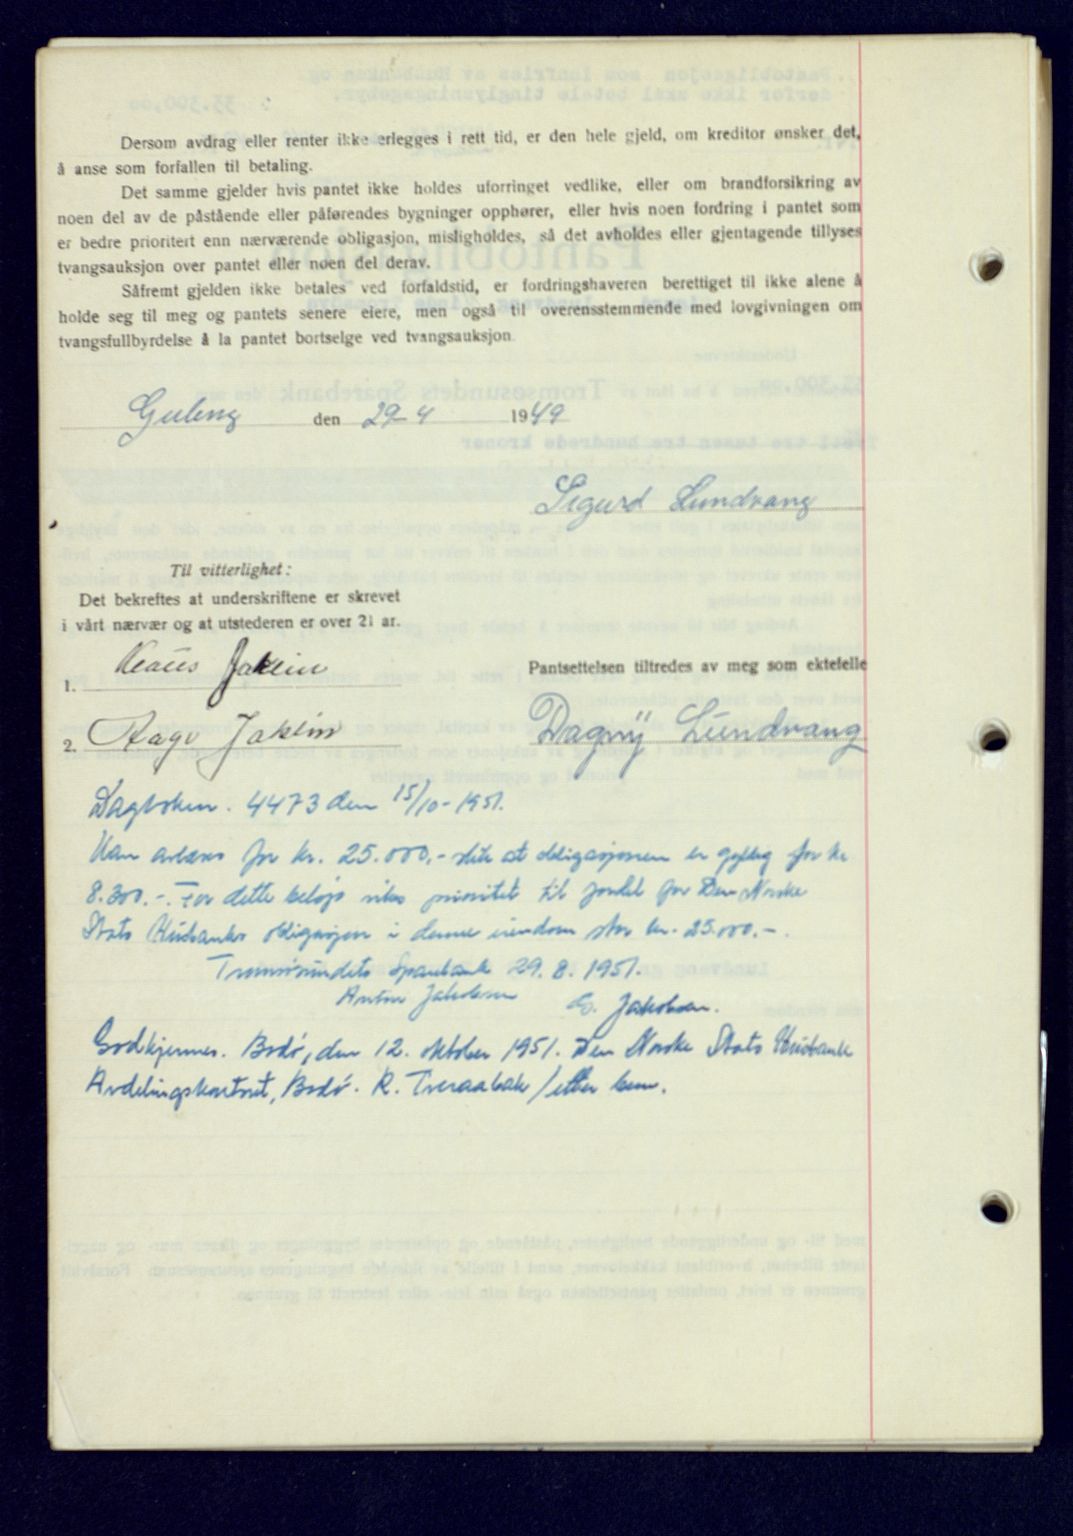 Dersom avdrag eller renter ikke erlegges i rett tid, er den hele gjeld, om kreditor ønsker det,
å anse som forfallen til betaling.
Det samme gjelder hvis pantet ikke holdes uforringet vedlike, eller om brandforsikring av
noen del av de påstående eller påførendes bygninger opphører, eller hvis noen fordring i pantet som
er bedre prioritert enn nærværende obligasjon, misligholdes, så det avholdes eller gjentagende tillyses
tvangsauksjon over pantet eller noen del derav.
Såfremt gjelden ikke betales ved forfaldstid, er fordringshaveren berettiget til ikke alene å
holde seg til meg og pantets senere eiere, men også til overensstemmende med lovgivningen om
tvangsfullbyrdelse å la pantet bortselge ved tvangsauksjon.
den 29-4 1949
Sigurd Lundvang
Til vitterlighet:
Det bekreftes at underskriftene er skrevet
i vårt nærvær og at utstederen er over 21 ar.
1. Klaus Jakein
Pantsettelsen tiltredes av meg som ektefelle
2. Aage Jakein
Dagny Lundvang
Dagboken. 4473 den 15/10-1951.
Kan avlæses for kr. 25.000,- slik at obligasjonen er gyldig for kr
8.300.-. For dette beløp vikes prioritet til fordel for Den Norske
Stats Husbanks obligasjon i denne eiendom stor kr. 25.000.-.
Tromsøsundets Sparebank 29.8.1951.
Anton Jakobsen E. Jakobsen.
Godkjennes. Bodø, den 12. oktober 1951. Den Norske Stats Husbank
Avdelingskontoret, Bodø. R. Tveraabak / etter bem.